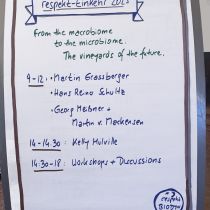 respekt-Einkehr 2023
From the macrobiome
to the microbiome.
The vineyards of the future.
9-12: • Martin Grassberger
• Hans Reino Schultz
• Georg Meißner +
Martin v. Mackensen
14-14.30: Kelly Mulville
14:30-18: Workshops + Discussions
respekt
BIODYN